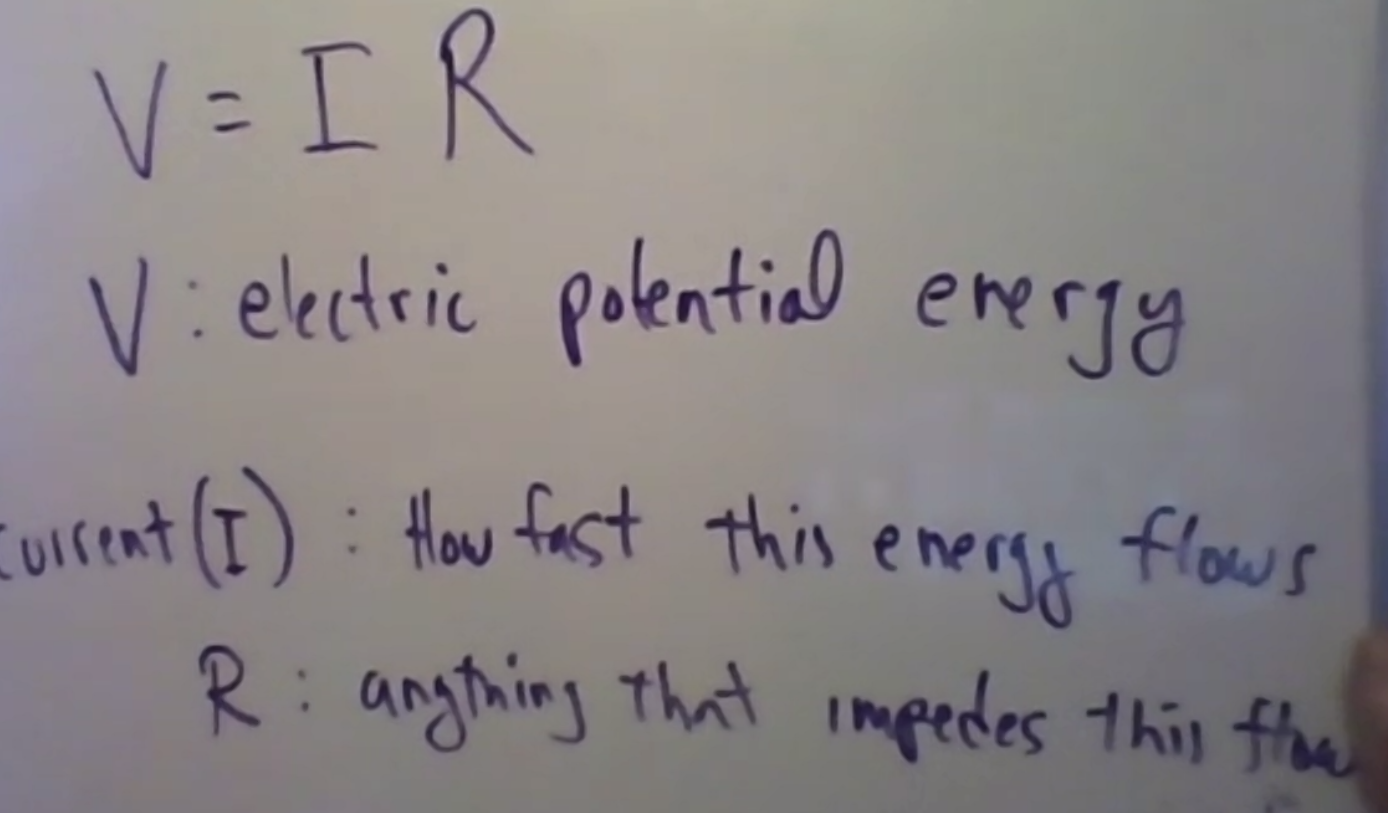 V = I R
V : electric potential energy
Current (I) : How fast this energy flows
R : anything that impedes this flow